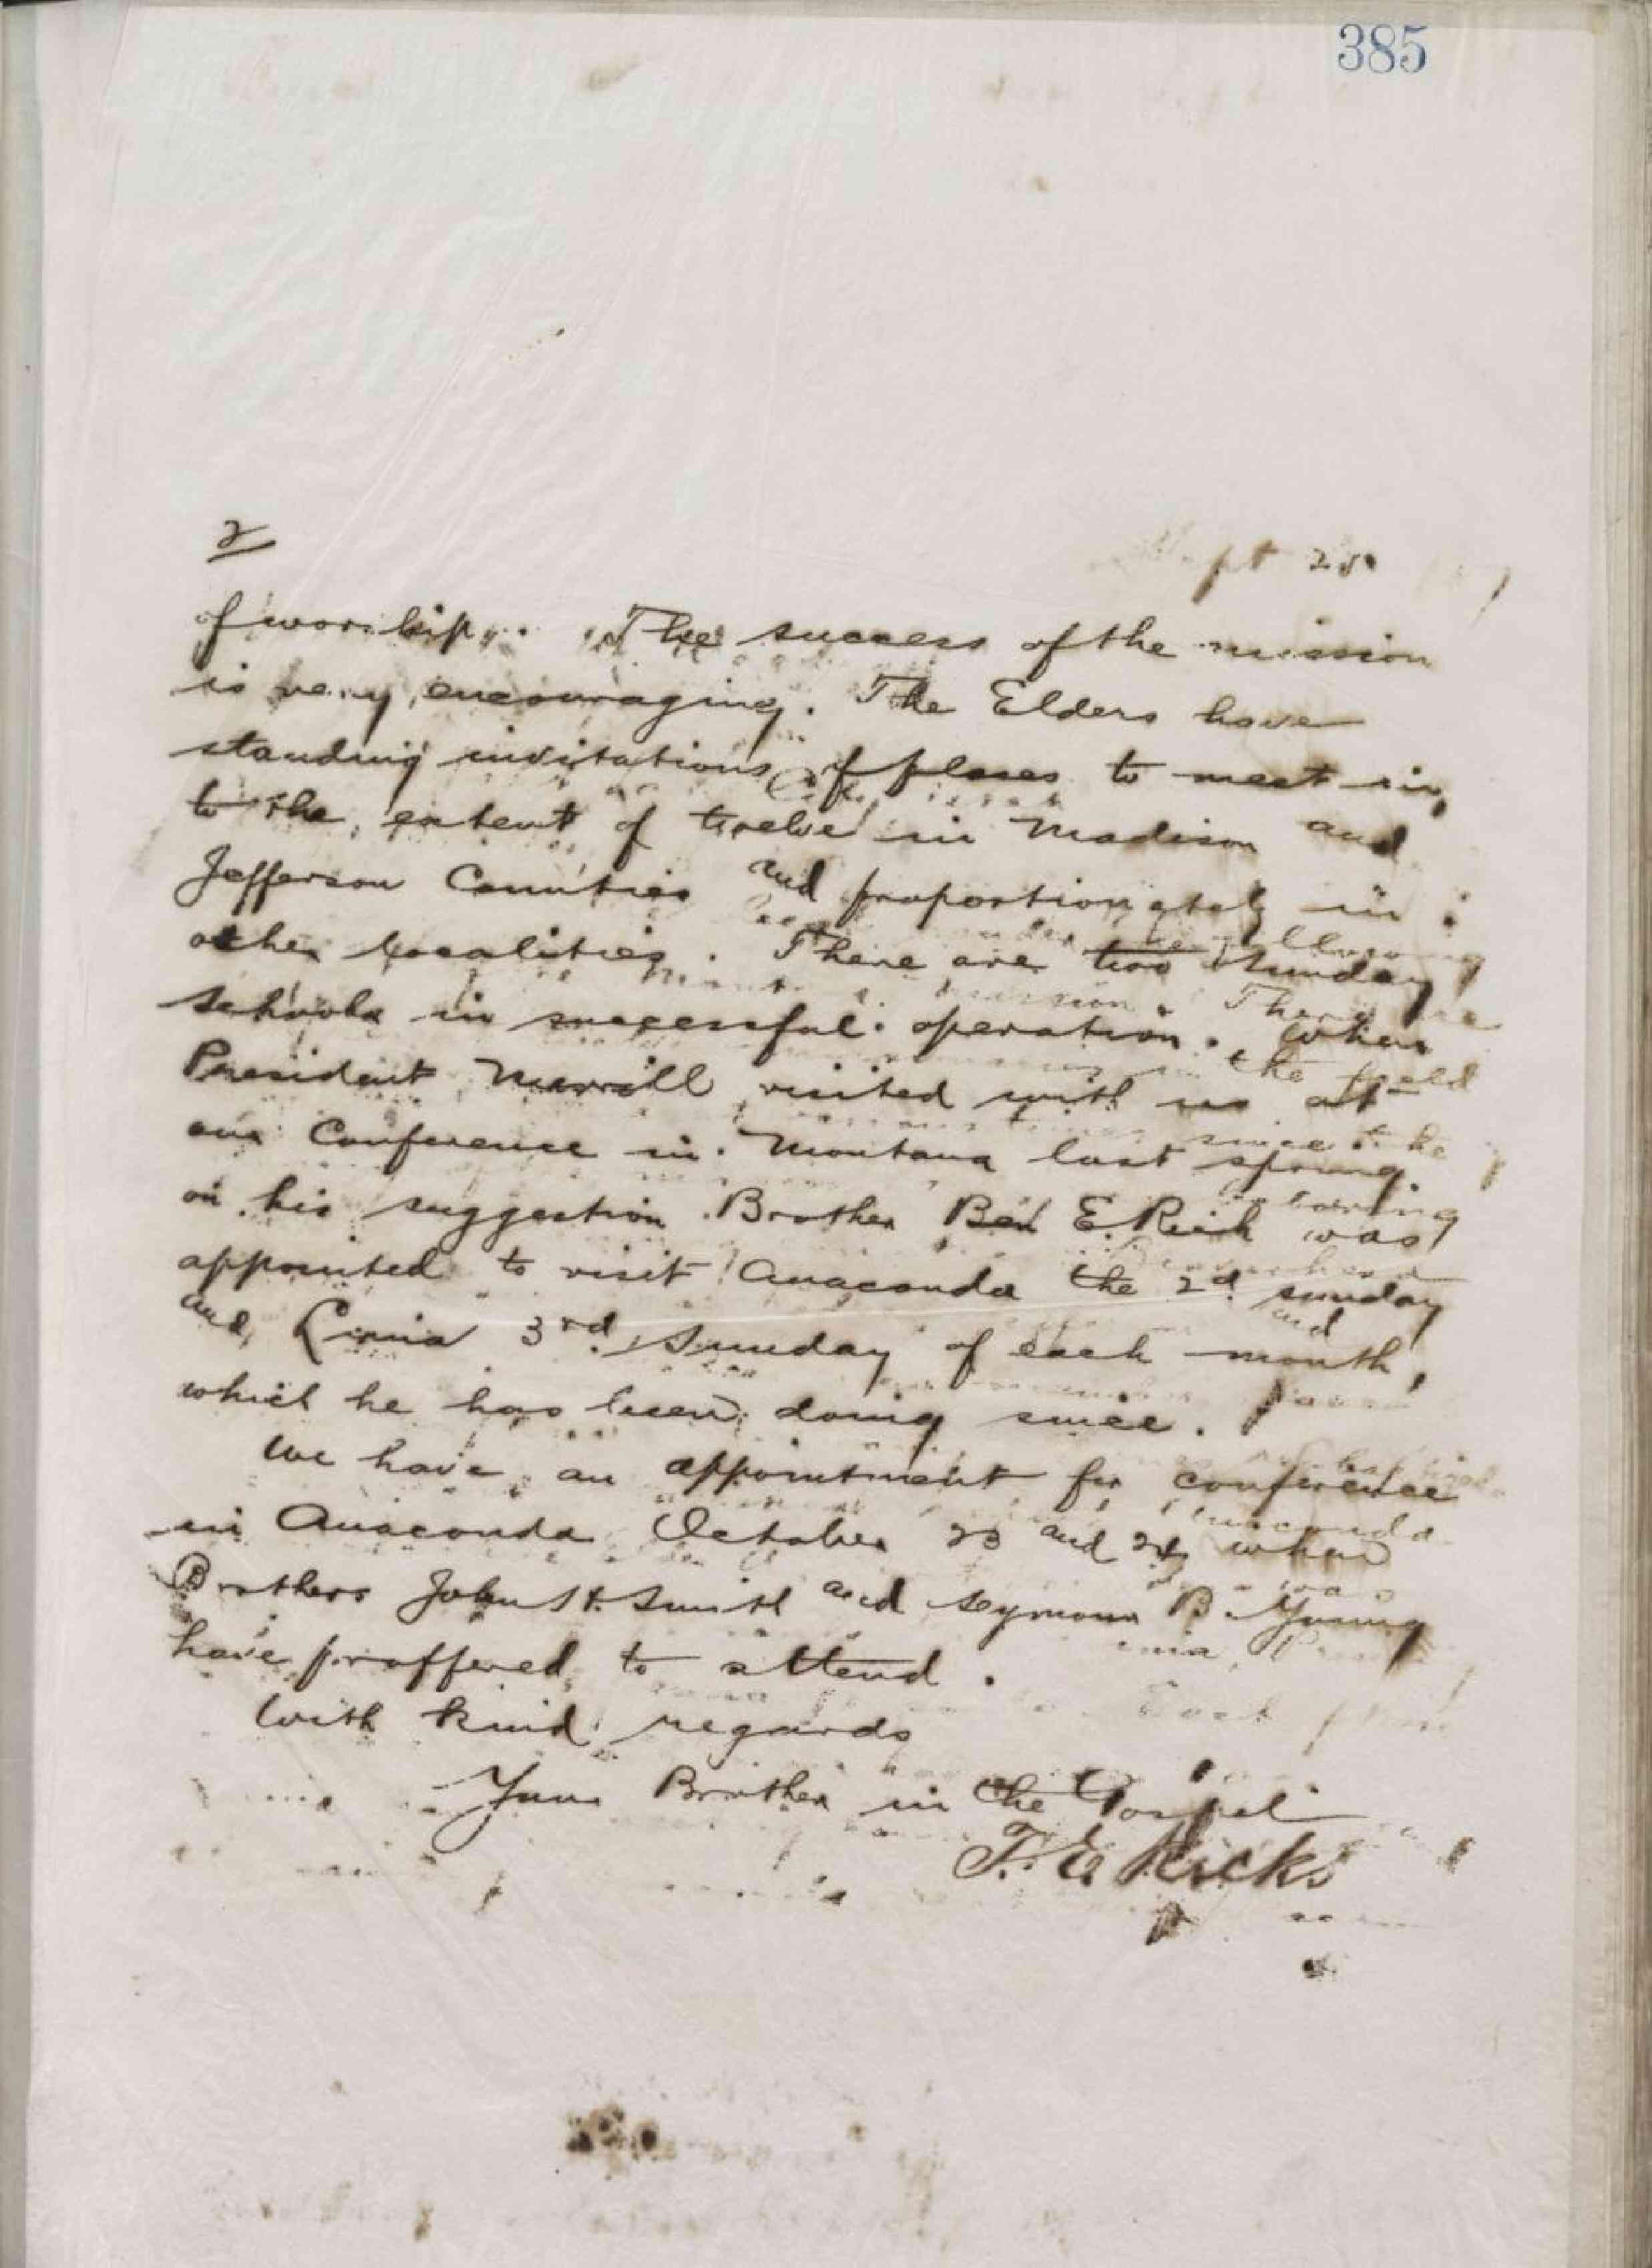 385
2
of worship. The success of the mission
is very encouraging. The Elders have
standing invitations of places to meet in,
to the extent of twelve in Madison and
Jefferson Counties and proportionately in
other localities. There are two Sunday
schools in successful operation. When
President Merrill visited with us at
our Conference in Montana last spring
on his suggestion Brother Ben E. Rich was
appointed to visit Anaconda the 2d sunday
and Lima 3rd Sunday of each month,
which he has been doing since.
We have an appointment for conference
in Anaconda October 23 and 24 when
Brothers John H. Smith and Seymour B. Young
have proffered to attend.
With kind regards
Your Brother in the Gospel
T. E. Ricks